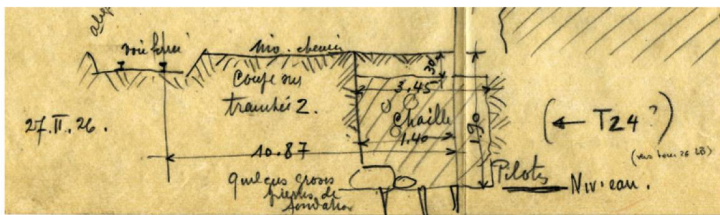 voie ferrée
niv. chemin
Coupe sur
tranchée 2.
27.II.26.
30
3.45
Chaille
1.40
1.90
10.87
(← T24?)
Quelques grosses
pierres de
fondation
Pilotis
Niveau.